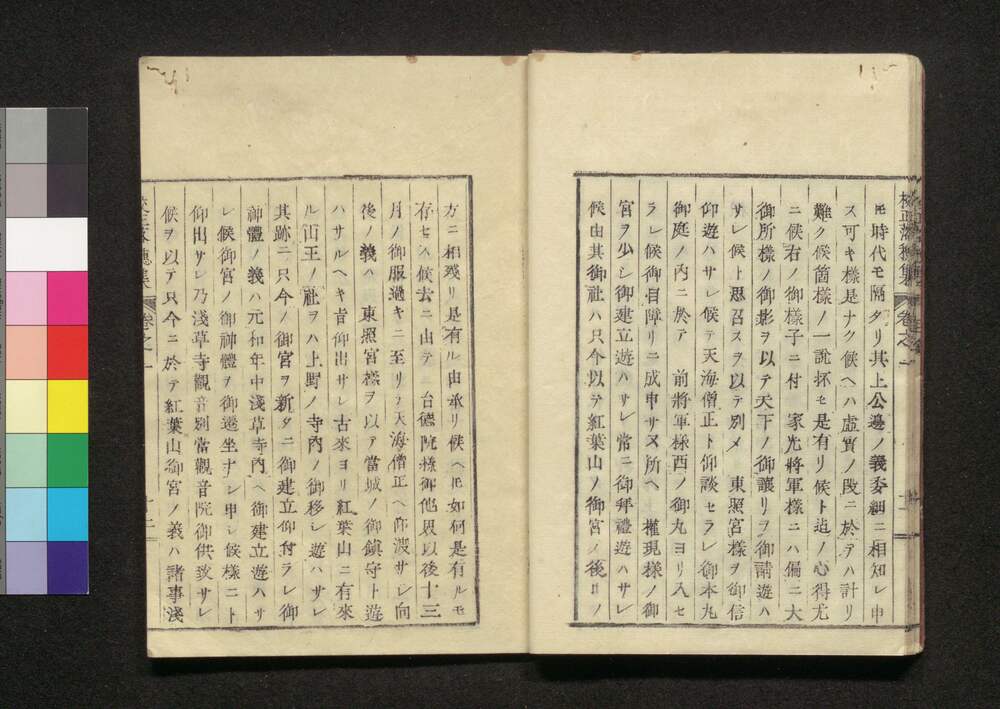 モ時代モ隔タリ其上公邊ノ義委細ニ相知レ申
ス可キ樣是ナク候ヘハ虛實ノ段ニ於テハ計リ
難ク候箇樣ノ一說抔モ是有リ候ト迠ノ心得尤
ニ候右ノ御樣子ニ付 家光將軍樣ニハ偏ニ大
御所樣ノ御影ヲ以テ天下ノ御讓リヲ御請遊ハ
サレ候ト思召スヲ以テ別メ 東照宮樣ヲ御信
仰遊ハサレ候テ天海僧正ト仰談セラレ御本丸
御庭ノ內ニ於テ 前將軍樣西ノ御丸ヨリ入セ
ラレ候御目障リニ成申サヌ所ヘ 權現樣ノ御
宮ヲ少シ御建立遊ハサレ常ニ御拜禮遊ハサレ
候由其御社ハ只今以テ紅葉山ノ御宮ノ後ロノ
方ニ相殘リ是有ル由承リ候ヘモ如何是有ルモ
存セス候去ニ由テ 台德院樣御他界以後十三
月ノ御服過キニ至リ天海僧正ヘ仰渡サレ向
後ノ義ハ 東照宮樣ヲ以テ當城ノ御鎭守ト遊
ハサルヘキ旨仰出サレ古來ヨリ紅葉山ニ有來
ル山王ノ社ヲハ上野ノ寺內ノ御移シ遊ハサレ
其跡ニ只今ノ御宮ヲ新タニ御建立仰付ラレ御
神體ノ義ハ元和年中淺草寺內ヘ御建立遊ハサ
レ候御宮ノ御神體ヲ御遷坐ナシ申レ候樣ニト
仰出サレ乃淺草寺觀音別當觀音院御供致サレ
候ヲ以テ只今ニ於テ紅葉山御宮ノ義ハ諸事淺
卷之一